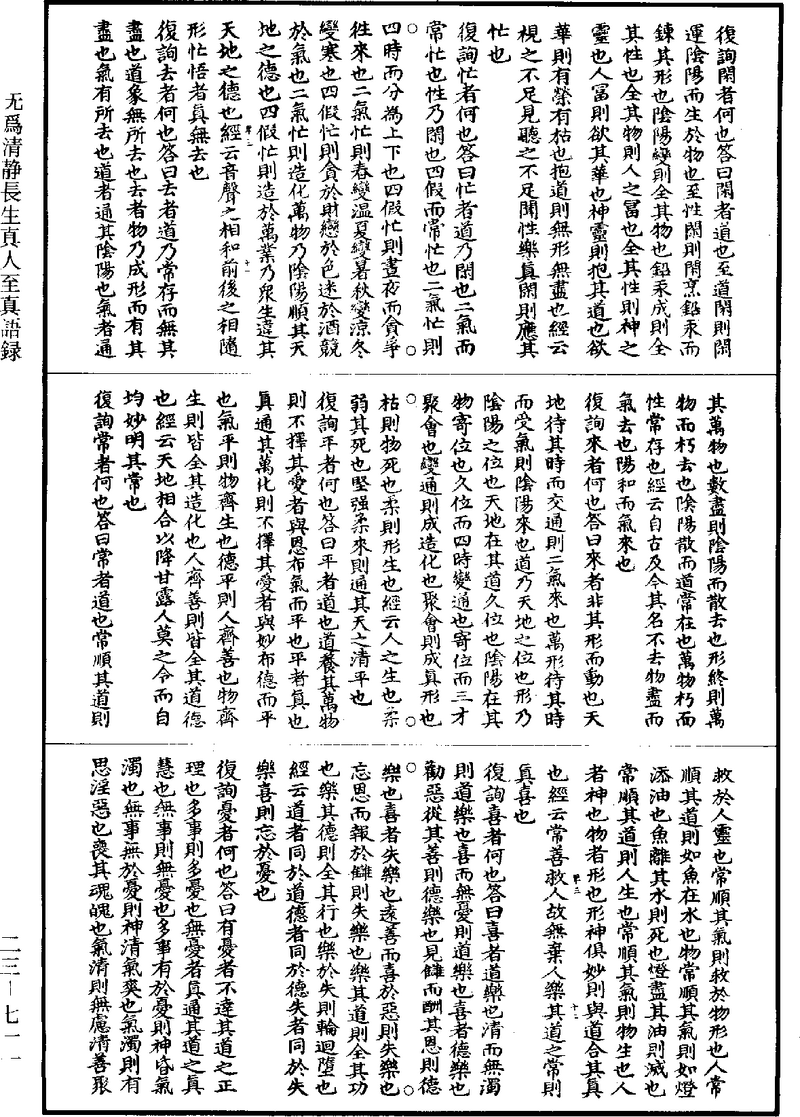 復詢閑者何也答曰閑者道也至道閑則閑
運陰陽而生於物也至性閑則閑烹鉛汞而
鍊其形也陰陽變則全其物也鉛汞成則全
其性也全其物則人之冨也全其性則神之
靈也人冨則欲其華也神靈則抱其道也欲
華則有榮有枯也抱道則無形無盡也經云
視之不足見聽之不足聞性樂真閑則應其
忙也
復詢忙者何也答曰忙者道乃閑也二氣而
常忙也性乃閑也四假而常忙也二氣忙則
四時而分為上下也四假忙則晝夜而貪爭
往來也二氣忙則春變溫夏變暑秋變涼冬
變寒也四假忙則貪於財戀於色迷於酒競
於氣也二氣忙則造化萬物乃陰陽順其天
地之德也四假忙則造於萬業乃衆生違其
天地之德也經云音聲之相和前後之相隨
形忙悟者真無去也
復詢去者何也答曰去者道乃常存而無其
盡也道象無所去也去者物乃成形而有其
盡也氣有所去也道者通其陰陽也氣者通
其萬物也數盡則陰陽而散去也形終則萬
物而朽去也陰陽散而道常在也萬物朽而
性常存也經云自古及今其名不去物盡而
氣去也陽和而氣來也
復詢來者何也答曰來者非其形而動也天
地待其時而交通則二氣來也萬形待其時
而受氣則陰陽來也道乃天地之位也形乃
陰陽之位也天地在其道久位也陰陽在其
物寄位也久位而四時變通也寄位而三才
聚會也變通則成造化也聚會則成真形也
枯則物死也柔則形生也經云人之生也柔
弱其死也堅强柔來則通其天之清平也
復詢平者何也答曰平者道也道養其萬物
則不擇其愛者與恩布氣而平也平者真也
真通其萬化則不擇其愛者與妙布德而平
也氣平則物齊生也德平則人齊善也物齊
生則皆全其造化也人齊善則皆全其道德
也經云天地相合以降甘露人莫之令而自
均妙明其常也
復詢常者何也答曰常者道也常順其道則
救於人靈也常順其氣則救於物形也人常
順其道則如魚在水也物常順其氣則如燈
添油也魚離其水則死也燈盡其油則滅也
常順其道則人生也常順其氣則物生也人
者神也物者形也形神俱妙則與道合其真
也經云常善救人故無棄人樂其道之常則
真喜也
復詢喜者何也答曰喜者道樂也清而無濁
則道樂也喜而無憂則道樂也喜者德樂也
勸惡從其善則德樂也見讎而酬其恩則德
樂也喜者失樂也遠善而喜於惡則失樂也
忘恩而報於讎則失樂也樂其道則全其功
也樂其德則全其行也樂於失則輪迴墮也
經云道者同於道德者同於德失者同於失
樂喜則忘於憂也
復詢憂者何也答曰有憂者不達其道之正
理也多事則多憂也無憂者真通其道之真
慧也無事則無憂也多事有於憂則神昏氣
濁也無事無於憂則神清氣爽也氣濁則有
思淫惡也喪其魂魄也氣清則無慮清善聚
无爲清静長生真人至真語録
二三－七一一